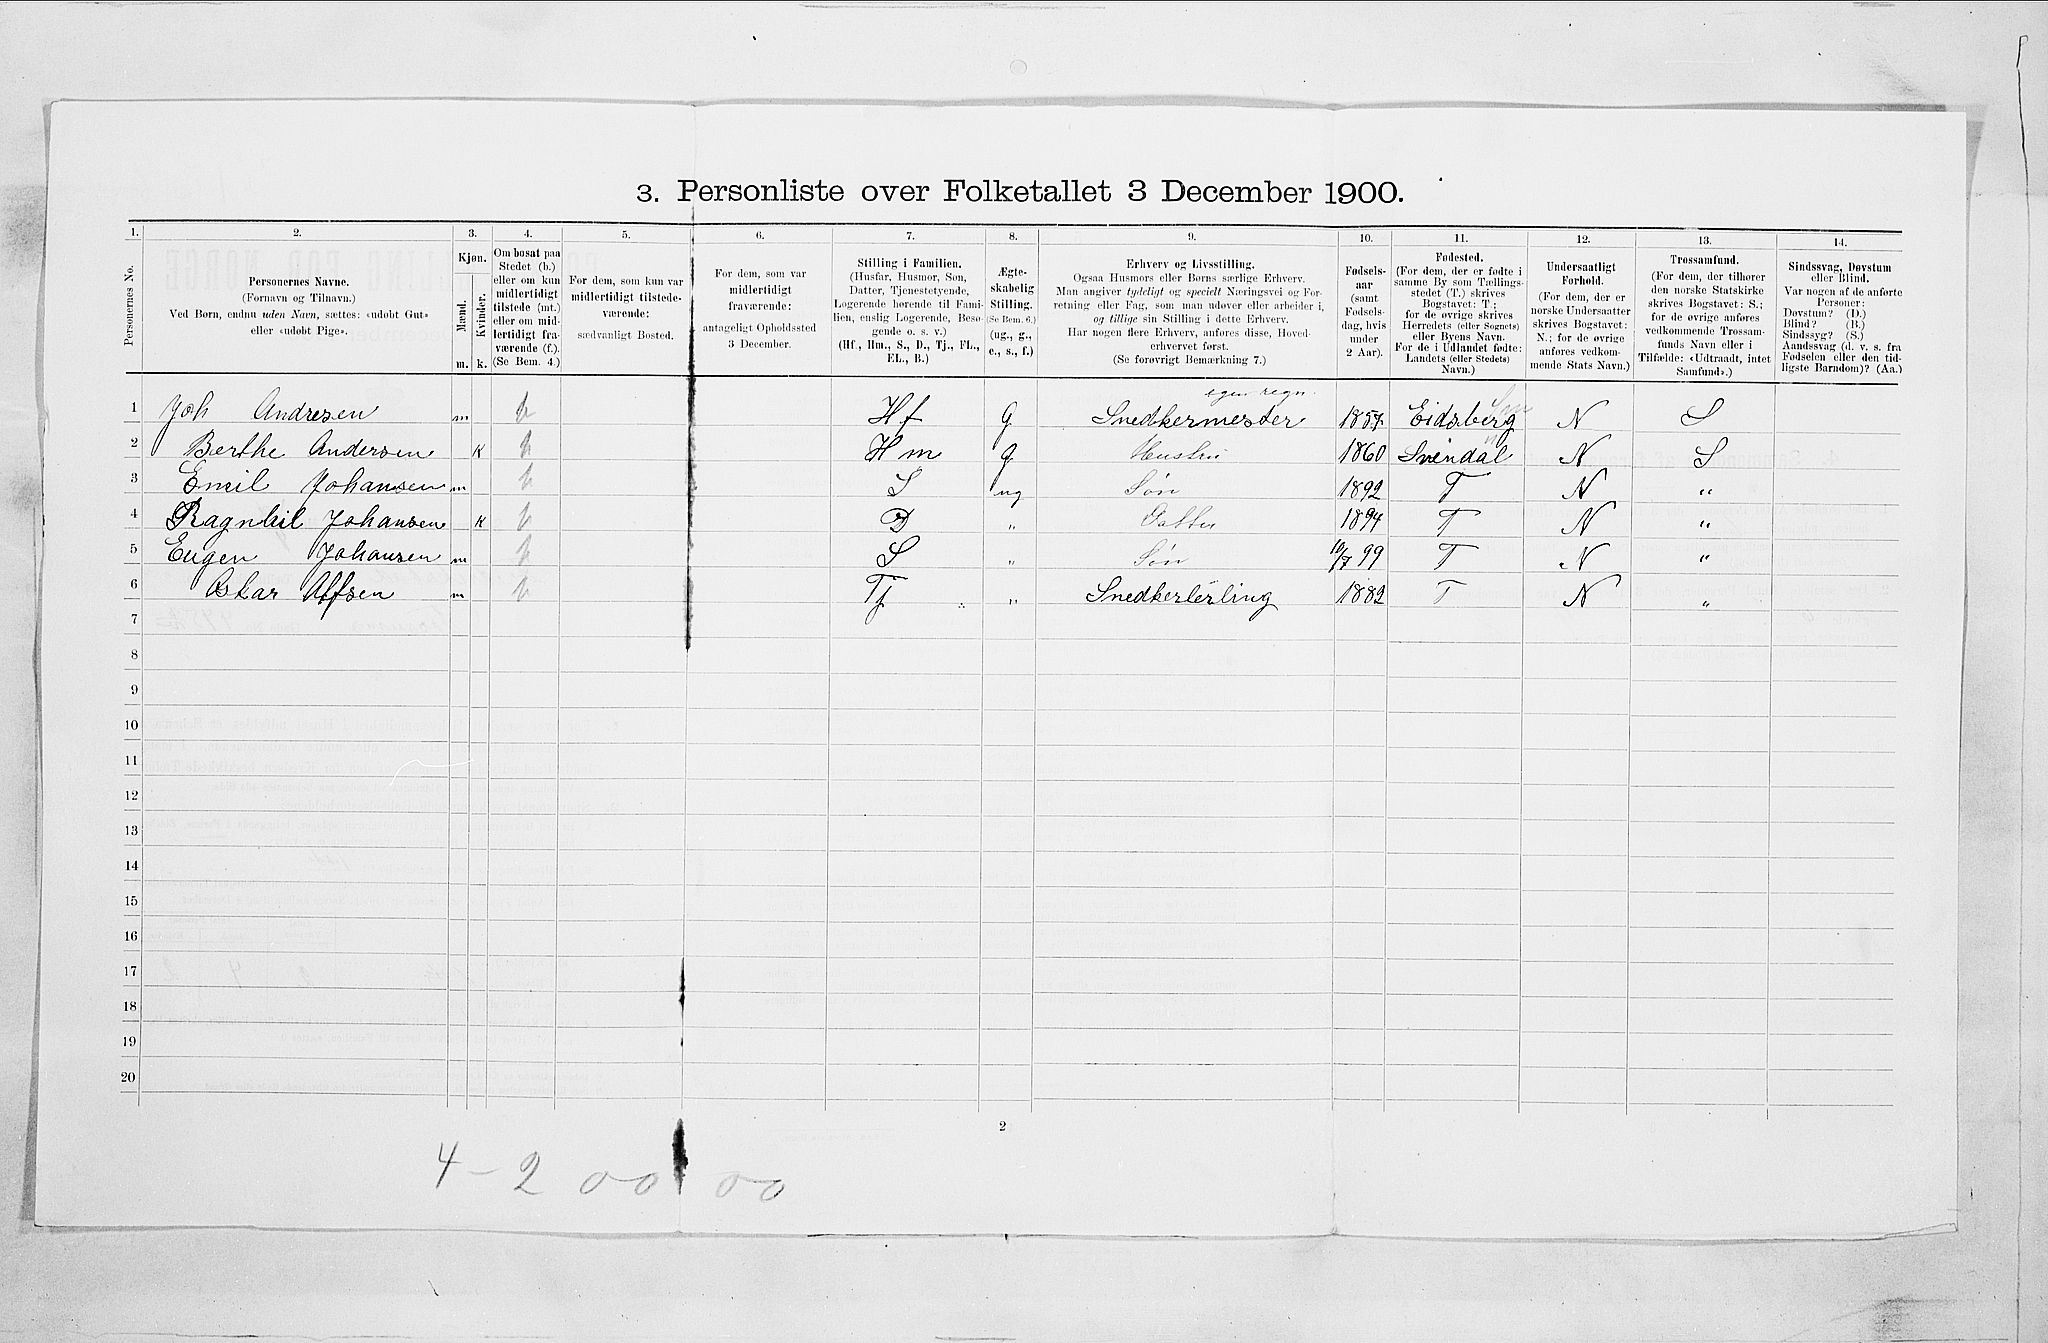 3. Personliste over Folketallet 3 December 1900.
1. 2. 3. 4. 5. 6. 7. 8. 9. 10. 11. 12. 13. 14.
Personernes No.
Personernes Navne.
(Fornavn og Tilnavn.)
Ved Børn, endnu uden Navn, sættes: «udøbt Gut»
eller «udøbt Pige».
Kjøn.
Mænd.
Kvinder.
m. k.
Om bosat paa
Stedet (b.)
eller om kun
midlertidigt
tilstede (mt.)
eller om mid-
lertidigt fra-
værende (f.).
(Se Bem. 4.)
For dem, som kun var
midlertidigt tilstede-
værende:
sædvanligt Bosted.
For dem, som var
midlertidigt
fraværende:
antageligt Opholdssted
3 December.
Stilling i Familien.
(Husfar, Husmor, Søn,
Datter, Tjenestetyende,
Logerende hørende til Fami-
lien, enslig Logerende, Besø-
gende o. s. v.)
(Hf., Hm., S., D., Tj., FL.,
EL., B.)
Ægte-
skabelig
Stilling.
(Se Bem. 6.)
(ug., g.,
e., s., f.)
Erhverv og Livsstilling.
Ogsaa Husmors eller Børns særlige Erhverv.
Man angiver tydeligt og specielt Næringsvei og For-
retning eller Fag, som man udøver eller arbeider i,
og tillige sin Stilling i dette Erhverv.
Har nogen flere Erhverv, anføres disse, Hoved-
erhvervet først.
(Se forøvrigt Bemærkning 7.)
Fødsels-
aar
(samt
Fødsels-
dag, hvis
under
2 Aar).
Fødested.
(For dem, der er fødte i
samme By som Tællings-
stedet (T.) skrives
Bogstavet: T.;
for de øvrige skrives
Herredets (eller Sognets)
eller Byens Navn.
For de i Udlandet fødte:
Landets (eller Stedets)
Navn.)
Undersaatligt
Forhold.
(For dem, der er
norske Undersaatter
skrives Bogstavet:
N.; for de øvrige
anføres vedkom-
mende Stats Navn.)
Trossamfund.
(For dem, der tilhører
den norske Statskirke
skrives Bogstavet: S.;
for de øvrige anføres
vedkommende Trossam-
funds Navn eller i
Tilfælde: «Udtraadt, intet
Samfund».)
Sindssvag, Døvstum
eller Blind.
Var nogen af de anførte
Personer:
Døvstum? (D.)
Blind? (B.)
Sindssyg? (S.)
Aandssvag (d. v. s. fra
Fødselen eller den tid-
ligste Barndom)? (Aa.)
egen regn.
1 Joh Andresen m b Hf g Snedkermester 1857 Eidsberg N S
2 Berthe Andersen k b Hm g Hustru 1860 Svindal N S
3 Emil Johansen m b S ug Søn 1892 T N "
4 Ragnhil Johansen k b D " Datter 1894 T N "
5 Eugen Johansen m b S " Søn 10/7 99 T N "
6 Oskar Alfsen m b Tj " Snedkerlerling 1882 T N "
7
8
9
10
11
12
13
14
15
16
17
18
19
20
2
4 - 2 00 00